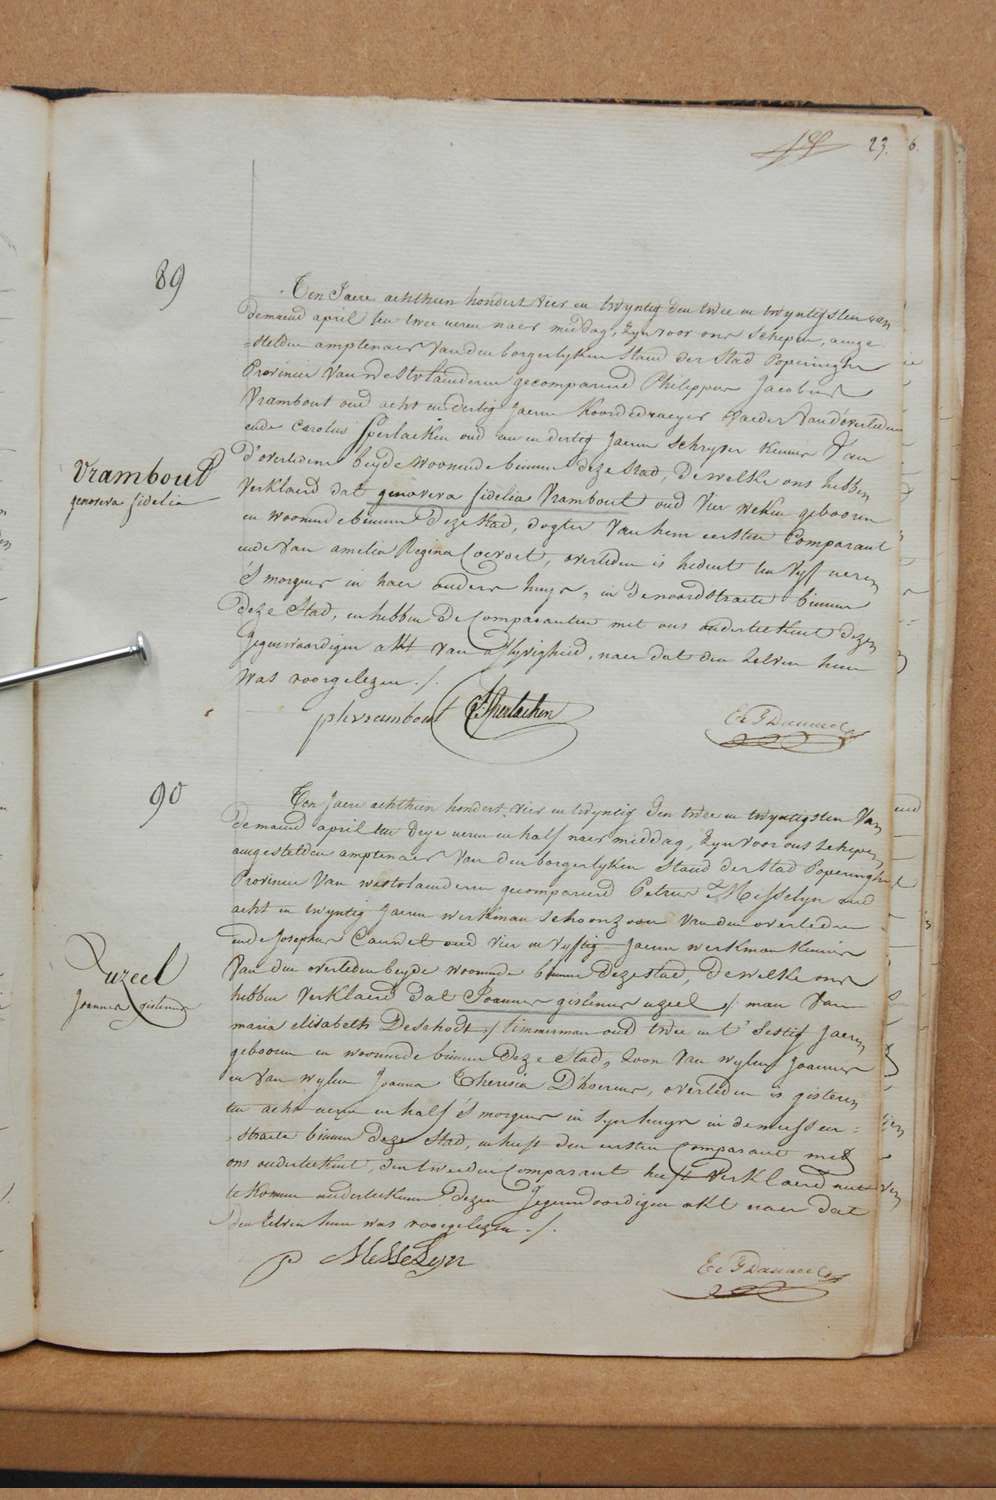 23.
6.
89
Ten Jaere achthien hondert vier en twyntig den twee en twyntigsten van
demaend april ten twee uren naer middag, zyn voor ons schepen, aenge
=stelden amptenaer van den borgerlyken stand der Stad Poperinghe
Provincie van westvlaenderen gecompareerd Philippus Jacobus
Vrambout oud acht en dertig jaeren koordedraeyer vaeder van d'overleden
ende Carolus Sperlaeken oud en dertig jaeren schryver kennis van
d'overledene beyde woonende binnen deze stad, dewelke ons hebben
verklaerd dat genoveva fidelia Vrambout oud vier weken gebooren
en woonende binnen deze stad, dogter van hem eersten Comparant
ende van amelia Regina Coevoet, overleden is heden ten vyf uren
's morgens in haer ouders huys, in denoordstraete binnen
deze Stad, en hebben de Comparanten met ons onderteekent dezen
Jegenwoordigen akt van aflyvigheid, naer dat den zelven hun
was voorgelezen ./.
Vrambout
genoveva fidelia
ph vrambout C Sperlaeken
90
Ten Jaere achthien hondert vier en twyntig den twee en twyntigsten van
demaend april ten drye uren en half naer middag, zyn voor ons schepen,
aengestelden amptenaer van den borgerlyken stand der stad Poperinghe
Provincie van westvlaenderen gecompareerd Petrus Messelyn oud
acht en twyntig jaeren werkman schoonzoon van den overleden
ende Josephus Caudet oud vier en vyftig jaeren werkman kennis
van den overleden beyde woonende binnen deze stad, dewelke ons
hebben verklaerd dat Joannes gislenus uzeel ./. man van
maria elisabeth Deschodt ./. timmerman oud twee en t' sestig jaeren
gebooren en woonende binnen deze stad, zoon van wylen Joannes
en van wylen Joanna Theresia D'hoenne, overleden is gisteren
ten acht uren en half 's morgens in syn huys in demeessen =
=straete binnen deze stad, en heeft den eersten Comparant met
ons onderteekent, den tweeden Comparant heeft verklaerd niet
te konnen onderteekenen dezen Jegenwoordigen akt naer dat
den zelven hun was voorgelezen ./.
uzeel
Joannes gislenus
p Messelyn